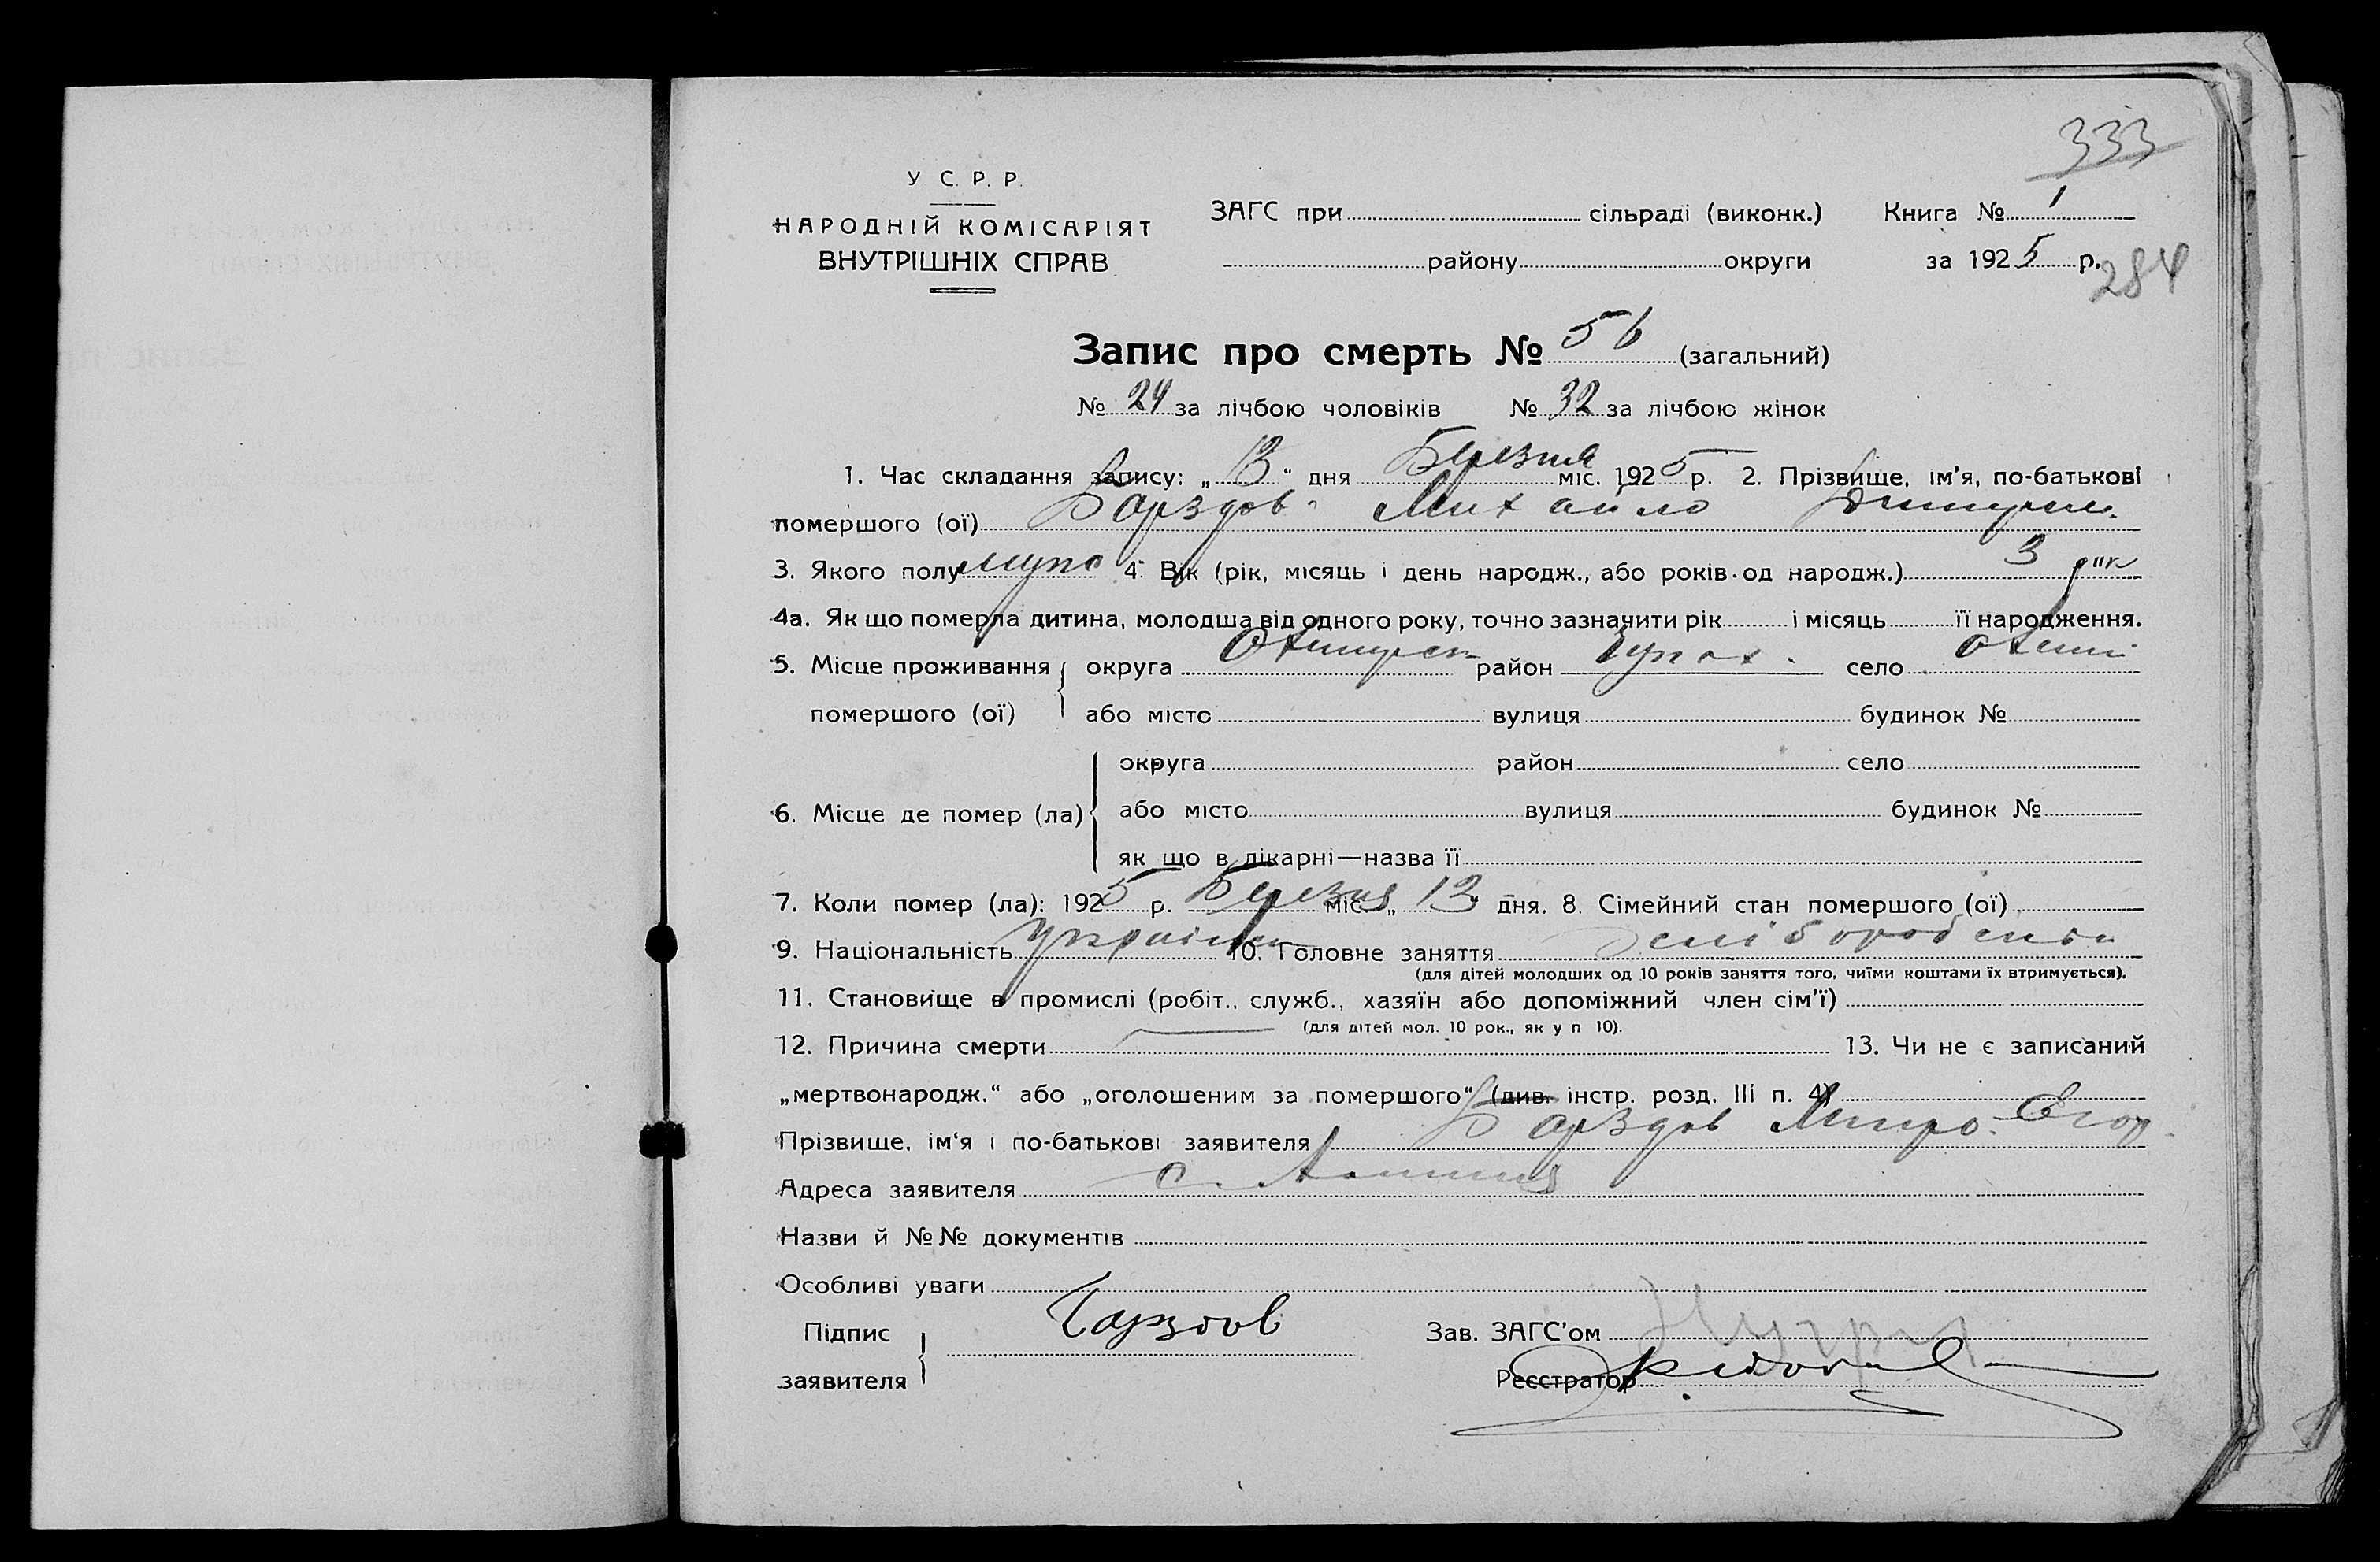 333
У С. Р. Р.
НАРОДНІЙ КОМІСАРІЯТ
ВНУТРІШНІХ СПРАВ
ЗАГС при сільраді (виконк.) Книга № 1
району округи за 1925 р.
284
Запис про смерть № 56 (загальний)
№ 24 за лічбою чоловіків № 32 за лічбою жінок
1. Час складання запису: „13“ дня Березня міс. 1925 р. 2. Прізвище, ім'я, по-батькові
помершого (ої) Барздов Михайло
3. Якого полу муж 4. Вік (рік, місяць і день народж., або років од народж.) 3 рік
4а. Як що померла дитина, молодша від одного року, точно зазначити рік і місяць її народження.
5. Місце проживання округа район село
помершого (ої) або місто вулиця будинок №
округа район село
6. Місце де помер (ла) або місто вулиця будинок №
як що в лікарні—назва її
7. Коли помер (ла): 1925 р. Березня міс. „13“ дня. 8. Сімейний стан помершого (ої)
9. Національність 10. Головне заняття
(для дітей молодших од 10 років заняття того, чиїми коштами їх втримується).
11. Становище в промислі (робіт., служб., хазяїн або допоміжний член сім'ї)
(для дітей мол. 10 рок., як у п 10).
12. Причина смерти 13. Чи не є записаний
„мертвонародж.“ або „оголошеним за помершого“ (див. інстр. розд. III п. 4)
Прізвище, ім'я і по-батькові заявителя Барздов
Адреса заявителя с.
Назви й №№ документів
Особливі уваги
Підпис
заявителя Барздов
Зав. ЗАГС'ом
Реєстратор